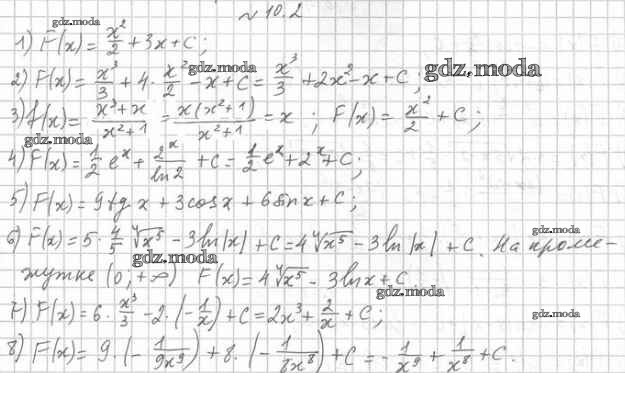 №10.2
gdz.moda
1) F(x) = x²/2 + 3x + C;
2) F(x) = x³/3 + 4 · x²/2 - x + C = x³/3 + 2x² - x + C;
gdz.moda
gdz.moda
3) f(x) = (x³+x)/(x²+1) = x(x²+1)/(x²+1) = x ; F(x) = x²/2 + C;
gdz.moda
4) F(x) = 1/2 eˣ + 2ˣ/ln2 + C = 1/2 eˣ + 2ˣ + C;
5) F(x) = 9tg x + 3cosx + 6sinx + C;
6) F(x) = 5 · 4/5 ⁴√x⁵ - 3ln|x| + C = 4 ⁴√x⁵ - 3ln|x| + C. На проме-
gdz.moda
gdz.moda
жутке (0; +∞) F(x) = 4 ⁴√x⁵ - 3lnx + C
gdz.moda
7) F(x) = 6 · x³/3 - 2 · (-1/x) + C = 2x³ + 2/x + C;
gdz.moda
8) F(x) = 9 · (-1/9x⁹) + 8 · (-1/8x⁸) + C = -1/x⁹ + 1/x⁸ + C.